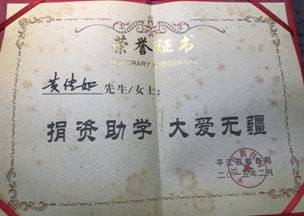 荣誉证书
HONORARY CREDENTIAL
先生/女士:
捐资助学 大爱无疆
平江县教育局
二〇二五年二月